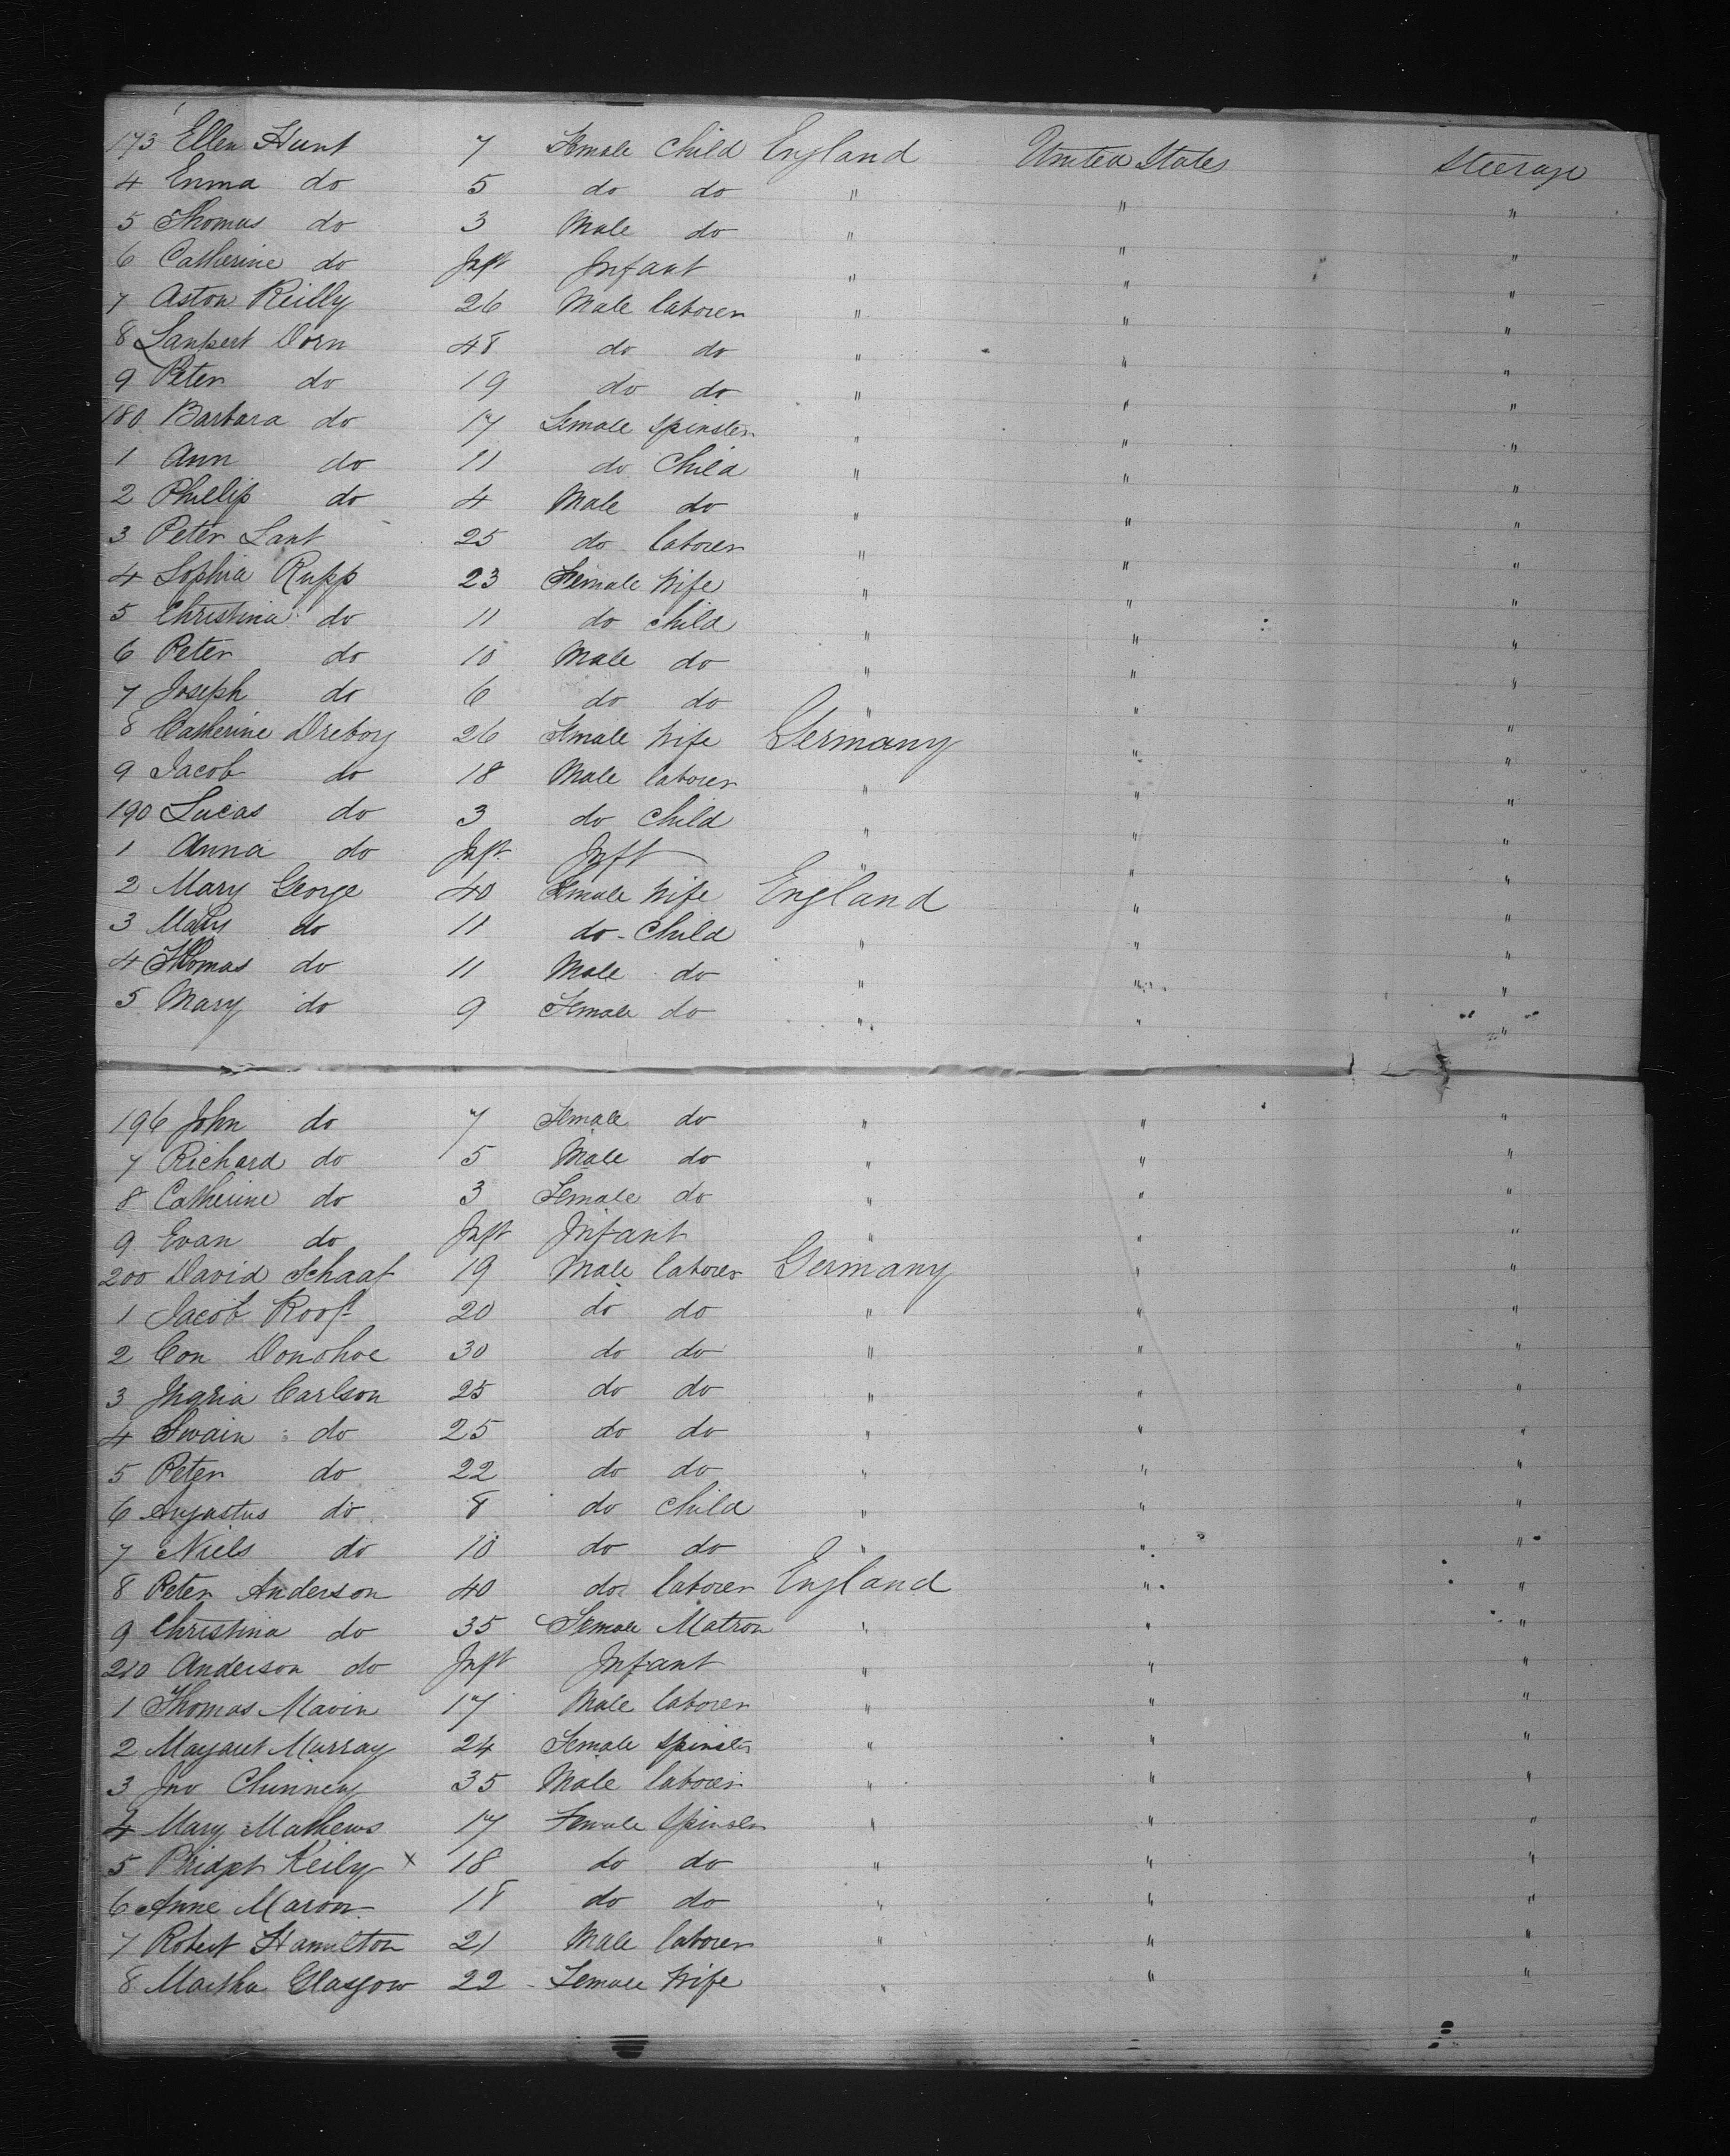 173 Ellen Hunt 7 Female Child England United States Steerage
4 Emma do 5 do do " " "
5 Thomas do 3 Male do " " "
6 Catherine do Inft Infant " " "
7 Aston Reilly 26 Male laborer " " "
8 Lanpert Dorn 48 do do " " "
9 Peter do 19 do do " " "
180 Barbara do 17 Female Spinster " " "
1 Ann do 11 do Child " " "
2 Phillip do 4 Male do " " "
3 Peter Lant 25 do laborer " " "
4 Sophia Rupp 23 Female Wife " " "
5 Christina do 11 do Child " " "
6 Peter do 10 Male do " " "
7 Joseph do 6 do do " " "
8 Catherine Drebory 26 Female Wife Germany " "
9 Jacob do 18 Male laborer " " "
190 Lucas do 3 do Child " " "
1 Anna do Inft Inft " " "
2 Mary George 40 Female Wife England " "
3 do 11 do Child " " "
4 Thomas do 11 Male do " " "
5 Mary do 9 Female do " " "
196 John do 7 Female do " " "
7 Richard do 5 Male do " " "
8 Catherine do 3 Female do " " "
9 Evan do Inft Infant " " "
200 David Schaaf 19 Male laborer Germany " "
1 Jacob Roost 20 do do " " "
2 Con Donohoe 30 do do " " "
3 Carlson 25 do do " " "
4 Swain do 25 do do " " "
5 Peter do 22 do do " " "
6 Augastus do 8 do Child " " "
7 Niels do 10 do do " " "
8 Peter Anderson 40 do laborer England " "
9 Christina do 35 Female Matron " " "
210 Anderson do Inft Infant " " "
1 Thomas Mavin 17 Male laborer " " "
2 Margaret Murray 24 Female Spinster " " "
3 Jno Chinney 35 Male laborer " " "
4 Mary Mathews 17 Female Spinster " " "
5 Bridget Keily x 18 do do " " "
6 Anne Maron 18 do do " " "
7 Robert Hamilton 21 Male laborer " " "
8 Martha Glasgow 22 Female Wife " " "